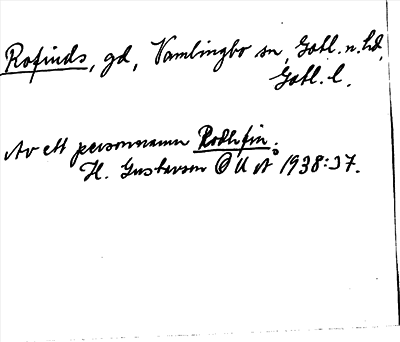 Rofinds, gd, Vamlingbo sn, Gotl. n. hd,
Gotl. l.
Av ett personnamn Rodhfin.
H. Gustavson OUÅ 1938:37.